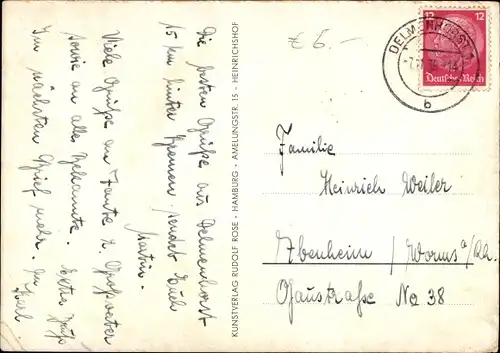 Die besten Grüße aus Delmenhorst
15 km hinter Bremen sendet Euch
Martin.
Viele Grüße an Tante u. Großvater
sowie an alle Bekannte.
Im nächsten Brief mehr.
KUNSTVERLAG RUDOLF ROSE - HAMBURG - AMELUNGSTR. 15 - HEINRICHSHOF
€ 6.-
DELMENHORST
b
12 12
Deutsches Reich
Familie
Heinrich Weiler
Abenheim / Worms a/Rh.
Gaustraße No 38